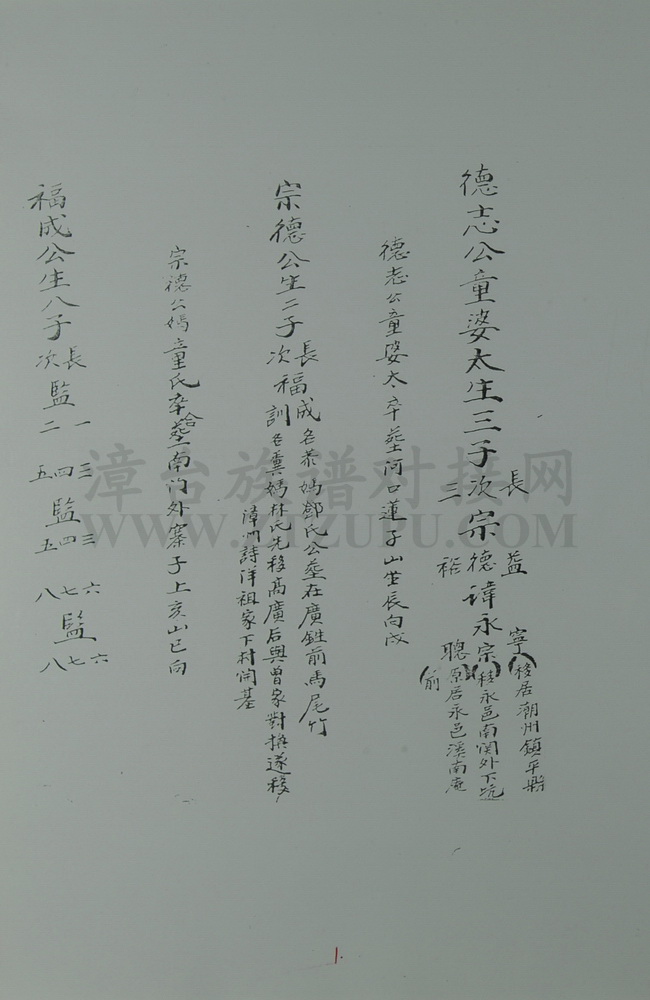 德志公童婆太生三子
長 益 寧(移居潮州鎮平縣)
次宗德諱永宗(移永邑南関外下坑)
三 裕 聰(原居永邑溪南庵前)
德志公童婆太卒塟河口蓮子山坐辰向戌
宗德公生二子
長福成名恭媽鄧氏公塟在廣銋前馬尾竹
次 訓名 媽林氏先移高廣后與曾家對換遂移
漳州詩洋祖家下村開基
宗德公媽童氏卒合塟南门外寨子上亥山巳向
福成公生八子
長 監 一 三 監 三 六 監 六
四 四 七 七
次 二 五 五 八 八
漳台族谱对接网
WWW.ZTZUPU.COM
1.